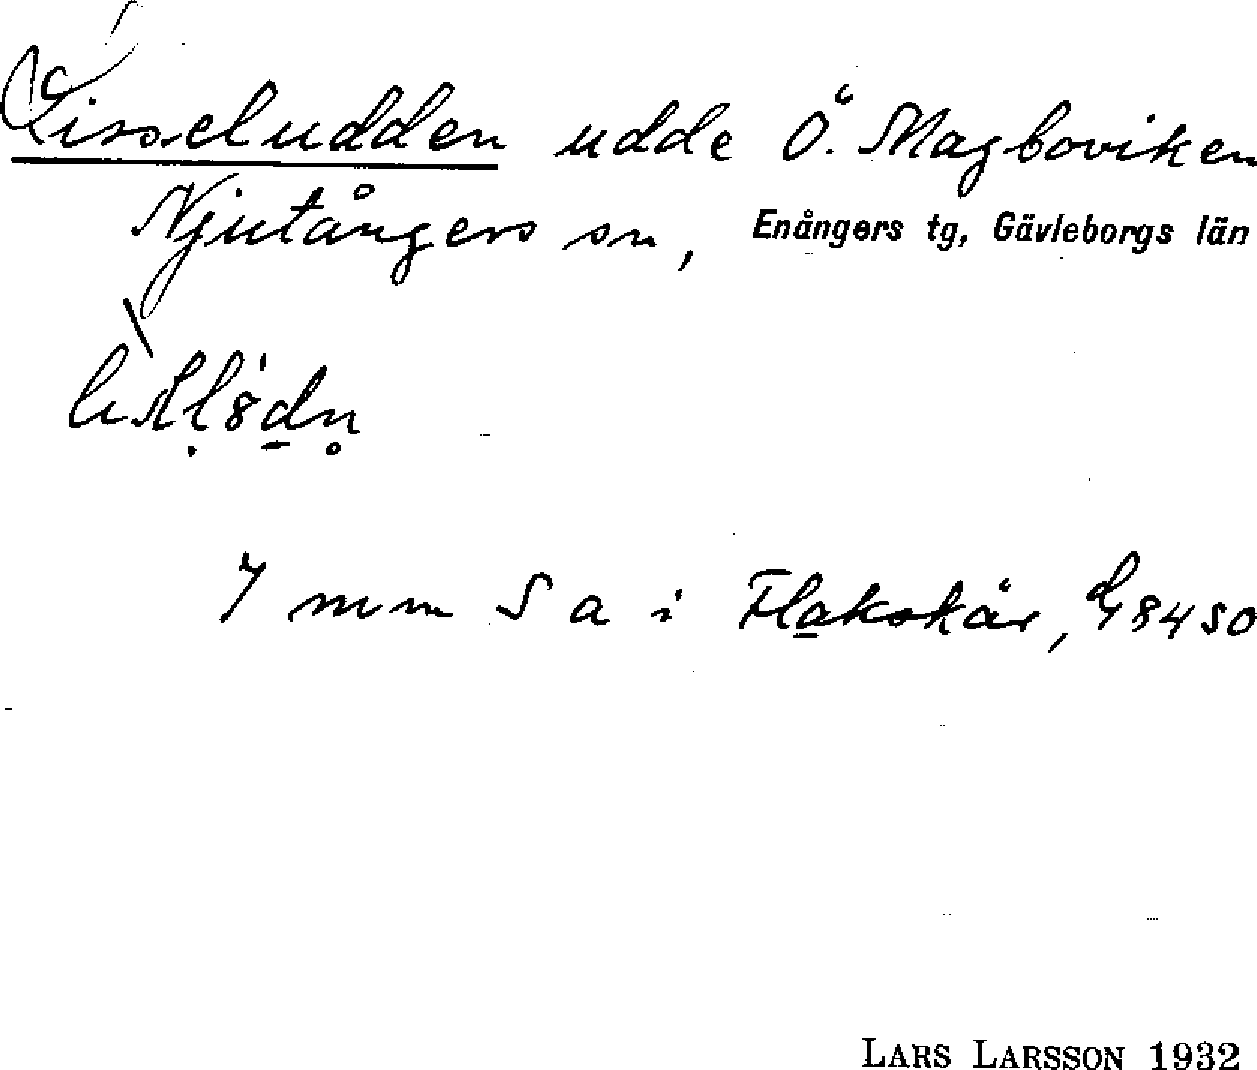 Lisseludden udde Ö. Magboviken
Njutångers sn, Enångers tg, Gävleborgs län
7 mm S a i Flakskär, G8450
LARS LARSSON 1932